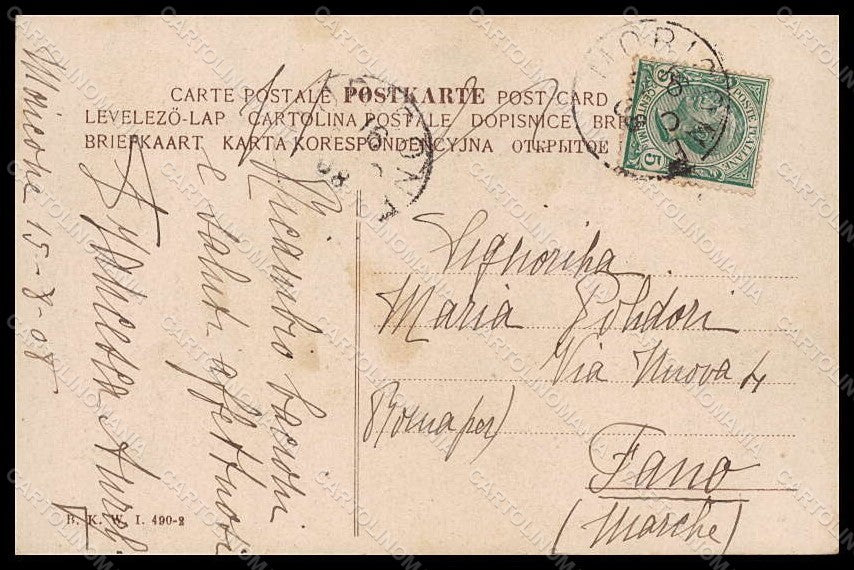 CARTE POSTALE POSTKARTE POST CARD
LEVELEZŐ-LAP CARTOLINA POSTALE DOPISNICE
BRIEFKAART KARTA KORESPONDENCYJNA ОТКРЫТОЕ
POSTE ITALIANE
5
Signorina
Maria Polidori
Via Nuova 4
(Roma per)
Fano
(Marche)
Moricone 15-8-08
Ricambio bacioni
e saluti affettuosi
B. K. W. I. 490-2
CARTOLINOMANIA